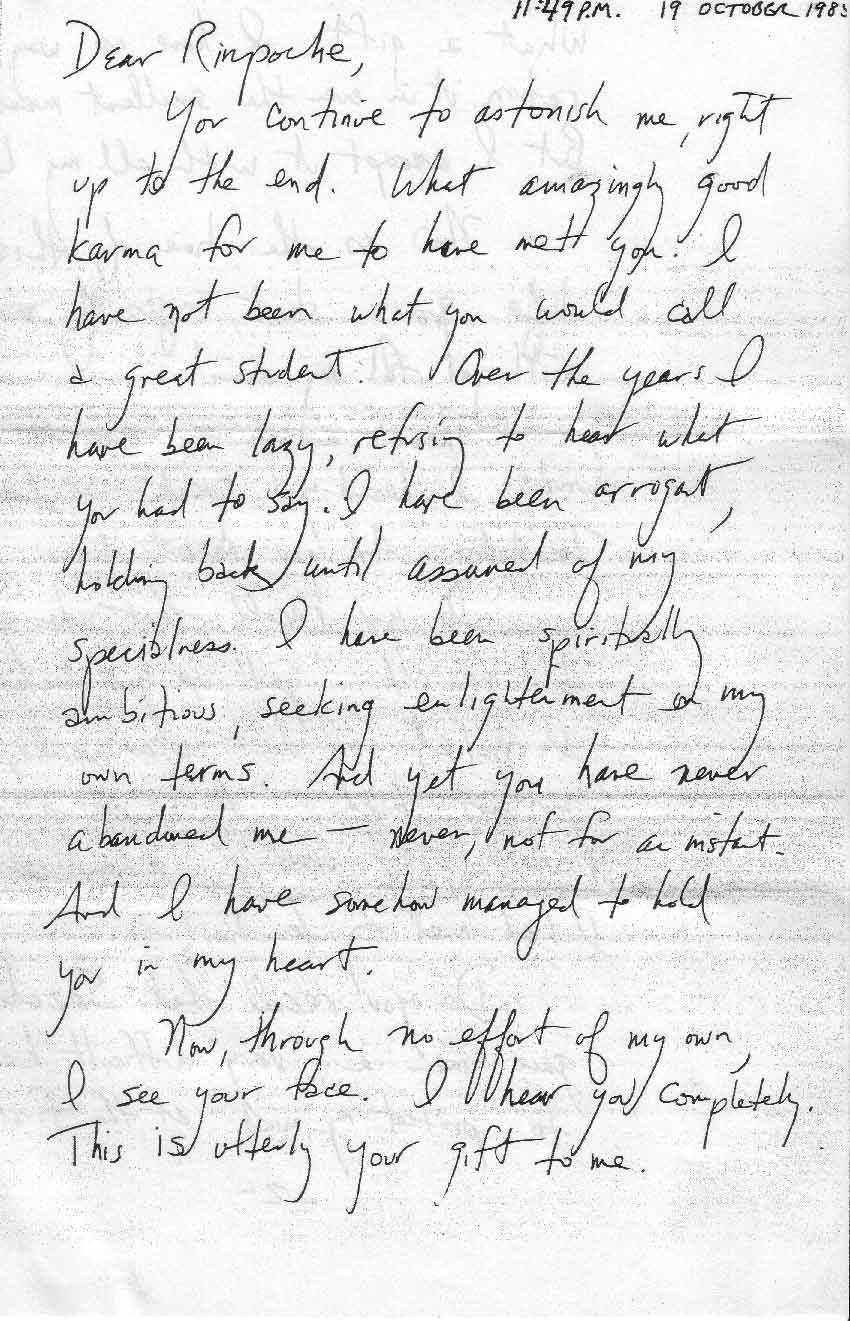 11:49 P.M. 19 OCTOBER 198
Dear Rinpoche,
You continue to astonish me, right
up to the end. What amazingly good
karma for me to have mett you. I
have not been what you would call
a great student. Over the years I
have been lazy, refusing to hear what
you had to say. I have been arrogant,
holding back until assured of my
specialness. I have been spiritually
ambitious, seeking enlightenment on my
own terms. And yet you have never
abandoned me — never, not for an instant.
And I have somehow managed to hold
you in my heart.
Now, through no effort of my own,
I see your face. I hear you completely.
This is utterly your gift to me.